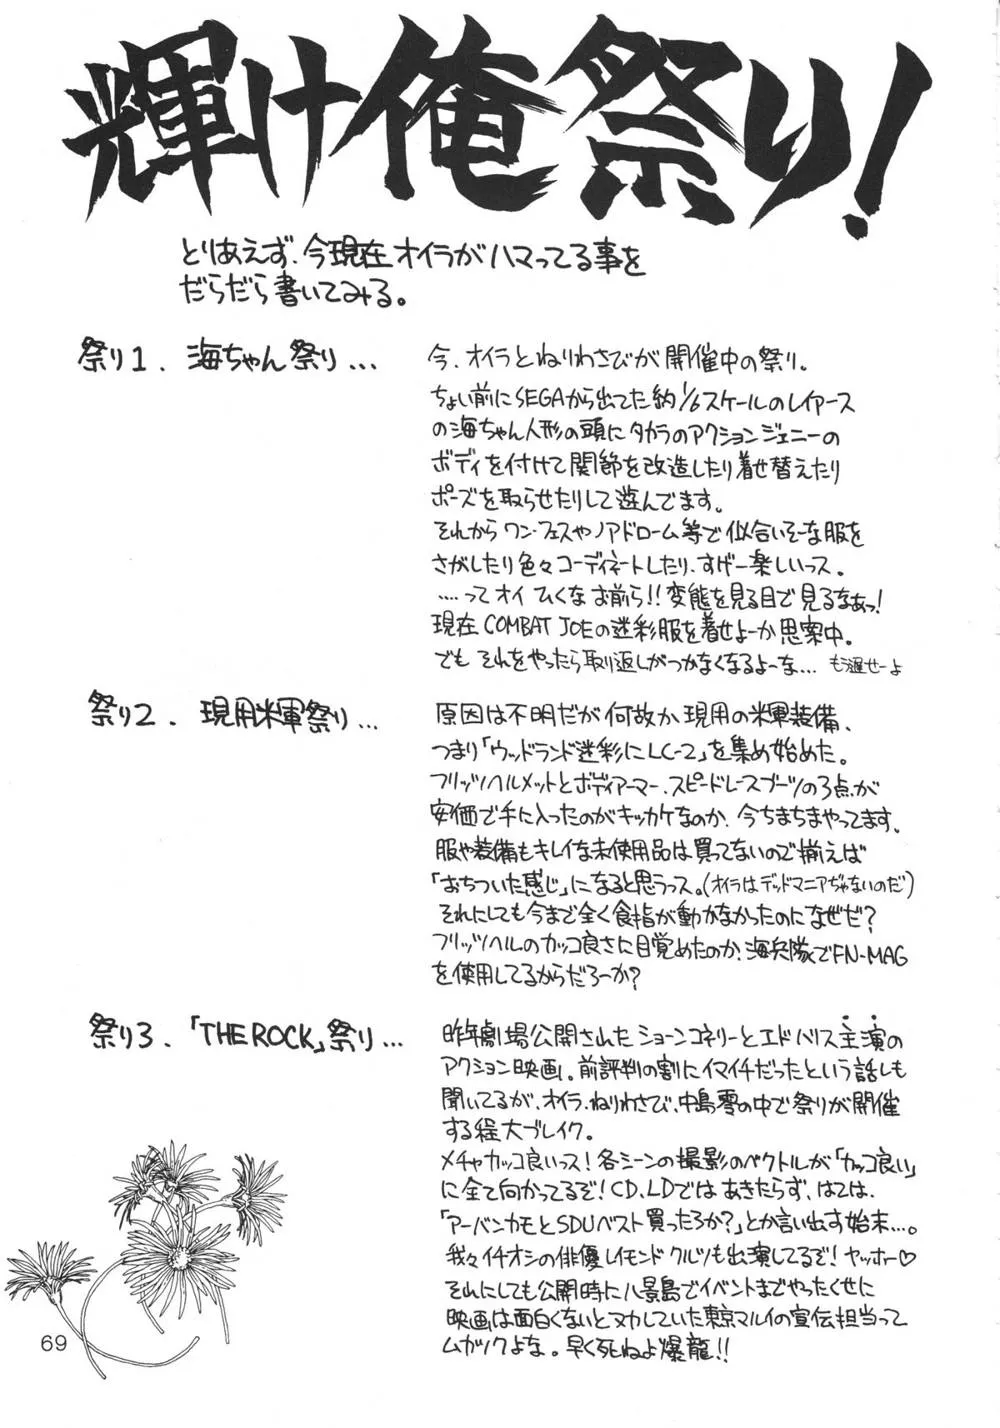 輝け俺祭り!
とりあえず、今現在オイラがハマってる事を
だらだら書いてみる。
祭り1. 海ちゃん祭り...
今、オイラとねりわさびが開催中の祭り。
ちょい前にSEGAから出てた約1/6スケールのレイアース
の海ちゃん人形の頭にタカラのアクションジェニーの
ボディを付けて関節を改造したり着せ替えたり
ポーズを取らせたりして遊んでます。
それからワン・フェスやノアドローム等で似合いそーな服を
さがしたり色々コーディネートしたり、すげー楽しいっス。
....ってオイ ひくなお前ら!!変態を見る目で見るなぁっ!
現在COMBAT JOEの迷彩服を着せよーか思案中。
でもそれをやったら取り返しがつかなくなるよーな... もう遅せーよ
祭り2. 現用米軍祭り...
原因は不明だが何故か現用の米軍装備、
つまり「ウッドランド迷彩にLC-2」を集め始めた。
フリッツヘルメットとボディアーマー、スピードレースブーツの3点が
安価で手に入ったのがキッカケなのか、今ちまちまやってます。
服や装備もキレイな未使用品は買ってないので揃えば
「おちついた感じ」になると思うっス。(オイラはデッドマニアぢゃないのだ)
それにしても今まで全く食指が動かなかったのになぜだ?
フリッツヘルのカッコ良さに目覚めたのか、海兵隊でFN-MAG
を使用してるからだろーか?
祭り3.「THE ROCK」祭り...
昨年劇場公開されたショーンコネリーとエドハリス主演の
アクション映画。前評判の割にイマイチだったという話しも
聞いてるが、オイラ、ねりわさび、中島零の中で祭りが開催
する程大ブレイク。
メチャカッコ良いっス!各シーンの撮影のベクトルが「カッコ良い」
に全て向かってるぞ!CD、LDではあきたらず、はては、
「アーバンカモとSDUベスト買ったろか?」とか言い出す始末...。
我々イチオシの俳優レイモンドクルツも出演してるぞ!ヤッホー♡
それにしても公開時に八景島でイベントまでやったくせに
映画は面白くないとヌカしていた東京マルイの宣伝担当って
ムガツクよな。早く死ねよ爆龍!!
69